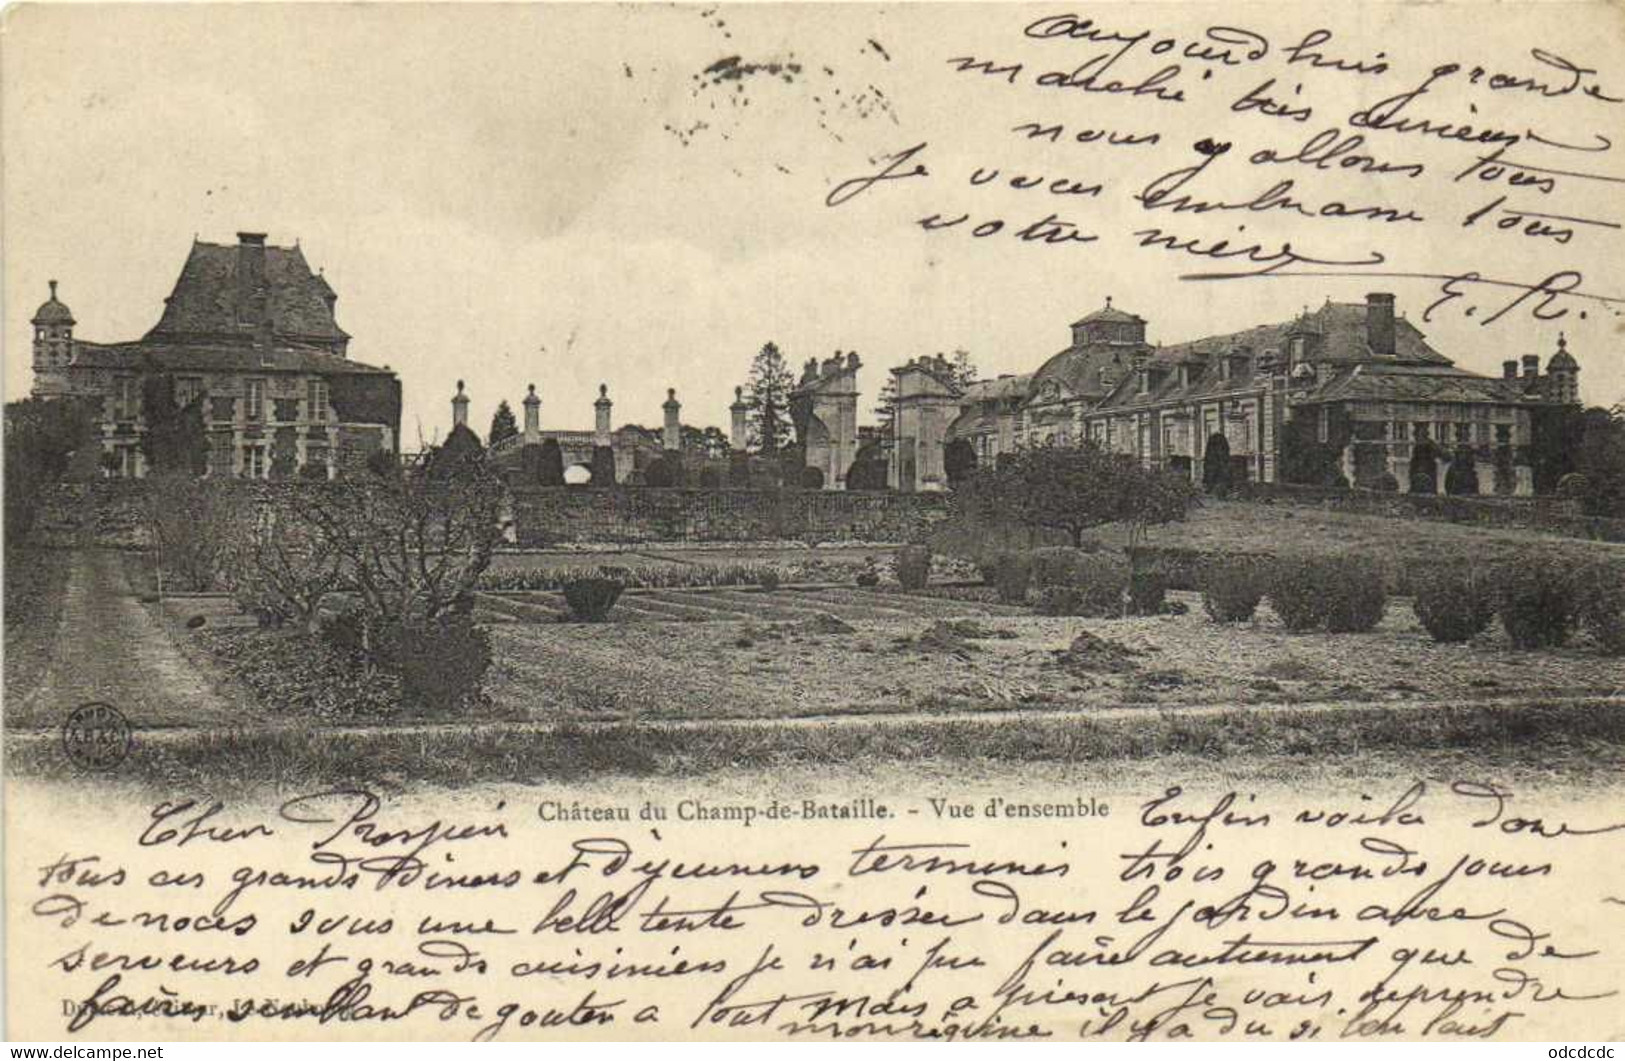 Aujourdhuis grande
marché très curieux
nous y allons tous
Je vous embrasse tous
votre mère
E. R.
Château du Champ-de-Bataille. - Vue d'ensemble
Cher Prospèr Enfin voila donc
tous ces grands Diners et Déjeuners terminés trois grands jours
de noces sous une belle tente dressée dans le jardin avec
serveurs et grands cuisiniers je n'ai pu faire autrement que de
faires semblant de gouter a tout mais a présent Je vais reprendre
mon régime il y a du si bon lait
PHOT
A.B.&C.
odcdcdc